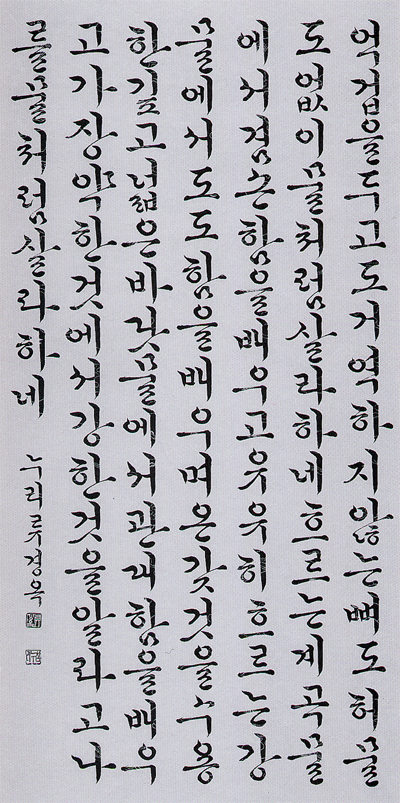 억겁을두고도거역하지않는뼈도허물
도없이물처럼살라하네흐르는계곡물
에서겸손함을배우고유유히흐르는강
물에서도도함을배우며온갖것을수용
한깊고넓은바닷물에서관대함을배우
고가장약한것에서강한것을알라고나
를물처럼살라하네
누리류경옥